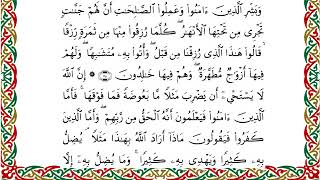 وَبَشِّرِ ٱلَّذِينَ ءَامَنُوا۟ وَعَمِلُوا۟ ٱلصَّـٰلِحَـٰتِ أَنَّ لَهُمْ جَنَّـٰتٍ
تَجْرِى مِن تَحْتِهَا ٱلْأَنْهَـٰرُ ۖ كُلَّمَا رُزِقُوا۟ مِنْهَا مِن ثَمَرَةٍ رِّزْقًا ۙ
قَالُوا۟ هَـٰذَا ٱلَّذِى رُزِقْنَا مِن قَبْلُ ۖ وَأُتُوا۟ بِهِۦ مُتَشَـٰبِهًا ۖ وَلَهُمْ
فِيهَآ أَزْوَٰجٌ مُّطَهَّرَةٌ ۖ وَهُمْ فِيهَا خَـٰلِدُونَ ۝ إِنَّ ٱللَّهَ
لَا يَسْتَحْىِۦٓ أَن يَضْرِبَ مَثَلًا مَّا بَعُوضَةً فَمَا فَوْقَهَا ۚ فَأَمَّا
ٱلَّذِينَ ءَامَنُوا۟ فَيَعْلَمُونَ أَنَّهُ ٱلْحَقُّ مِن رَّبِّهِمْ ۖ وَأَمَّا ٱلَّذِينَ
كَفَرُوا۟ فَيَقُولُونَ مَاذَآ أَرَادَ ٱللَّهُ بِهَـٰذَا مَثَلًا ۘ يُضِلُّ
بِهِۦ كَثِيرًا وَيَهْدِى بِهِۦ كَثِيرًا ۚ وَمَا يُضِلُّ بِهِۦٓ إِلَّا